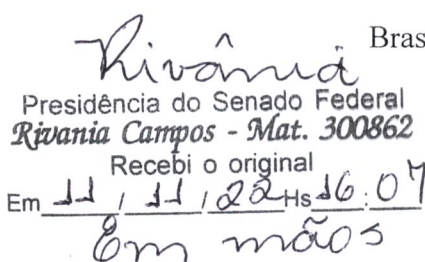 Bras
Rivânia
Presidência do Senado Federal
Rivania Campos - Mat. 300862
Recebi o original
Em 11 / 11 / 22 Hs 16:07
Em mãos